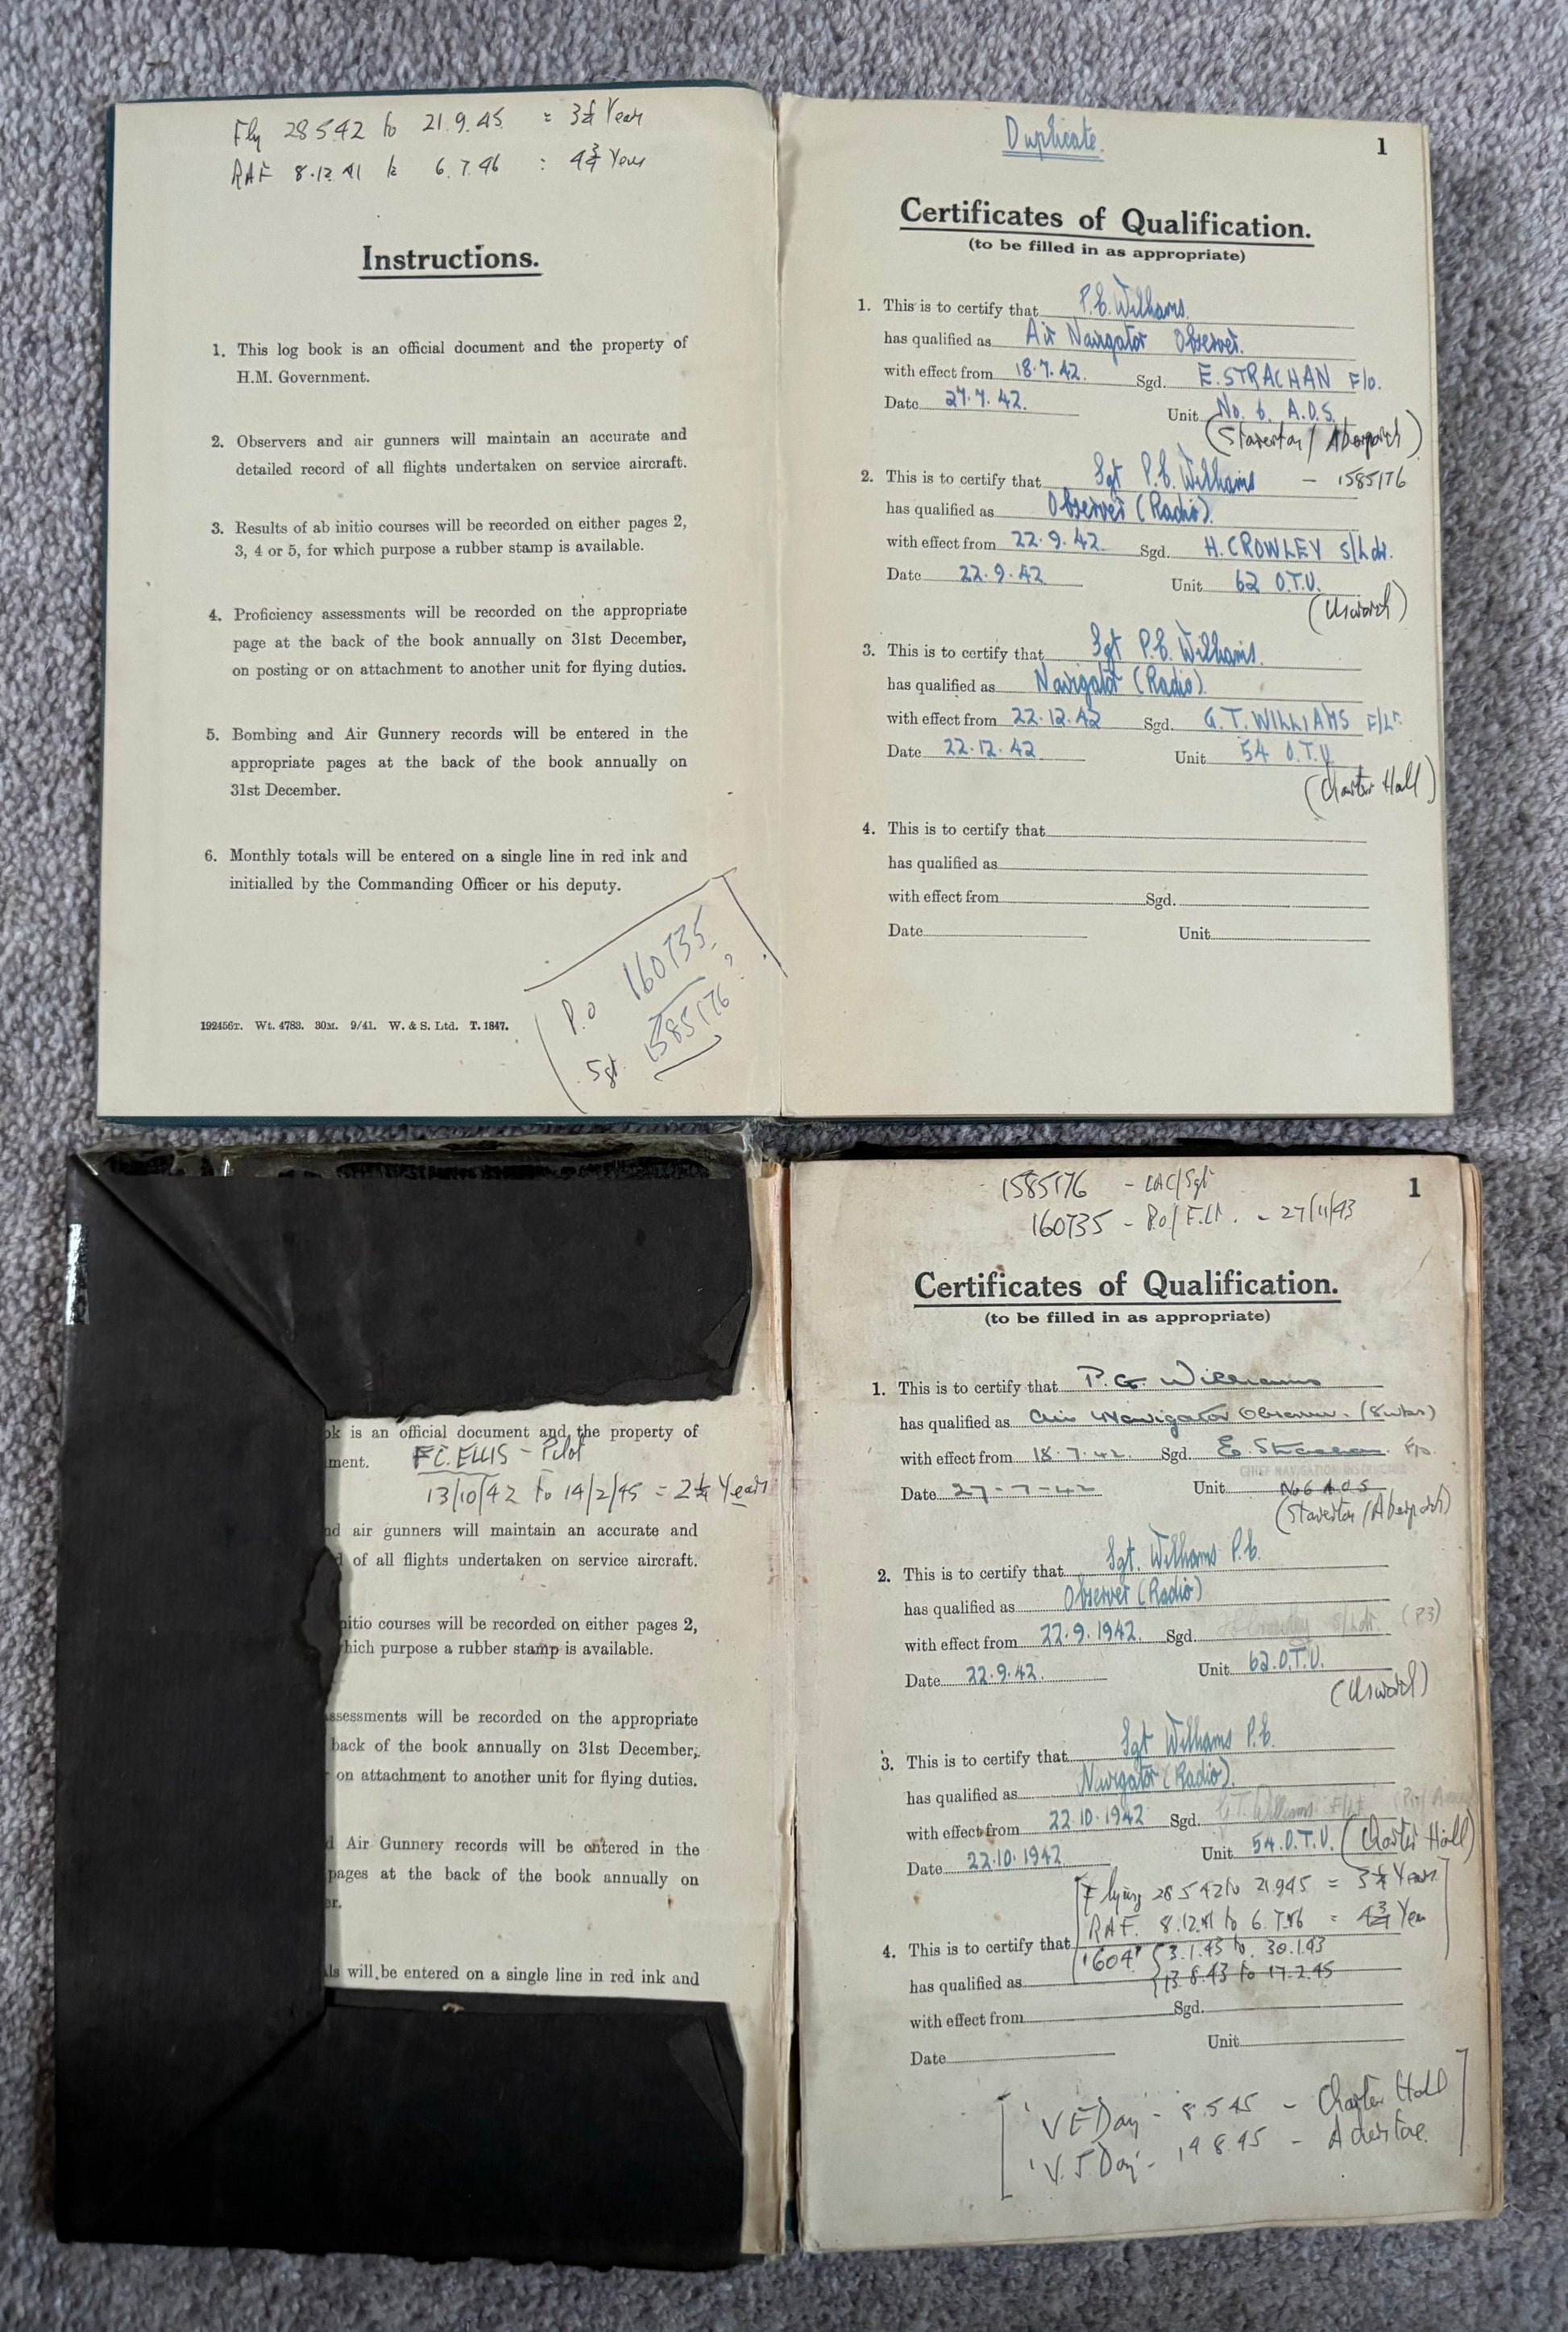 Fly 28 5 42 to 21.9.45 = 3¼ Years
RAF 8.12.41 to 6.7.46 : 4¾ Years
Instructions.
1. This log book is an official document and the property of
H.M. Government.
2. Observers and air gunners will maintain an accurate and
detailed record of all flights undertaken on service aircraft.
3. Results of ab initio courses will be recorded on either pages 2,
3, 4 or 5, for which purpose a rubber stamp is available.
4. Proficiency assessments will be recorded on the appropriate
page at the back of the book annually on 31st December,
on posting or on attachment to another unit for flying duties.
5. Bombing and Air Gunnery records will be entered in the
appropriate pages at the back of the book annually on
31st December.
6. Monthly totals will be entered on a single line in red ink and
initialled by the Commanding Officer or his deputy.
P.O 160735
Sgt 1585176 ?
192456T. Wt. 4783. 30M. 9/41. W. & S. Ltd. T. 1847.
Duplicate.
1
Certificates of Qualification.
(to be filled in as appropriate)
1. This is to certify that P.G. Williams.
has qualified as Air Navigator Observer.
with effect from 18.7.42. Sgd. E. STRACHAN F/O.
Date 27.7.42. Unit No. 6 A.O.S.
(Staverton / Aberporth)
2. This is to certify that Sgt P.G. Williams - 1585176
has qualified as Observer (Radio).
with effect from 22.9.42. Sgd. H. CROWLEY S/Ldr.
Date 22.9.42 Unit 62 O.T.U.
(Usworth)
3. This is to certify that Sgt P.G. Williams.
has qualified as Navigator (Radio).
with effect from 22.12.42 Sgd. G.T. WILLIAMS F/Lt.
Date 22.12.42 Unit 54 O.T.U.
(Charter Hall)
4. This is to certify that
has qualified as
with effect from Sgd.
Date Unit
ok is an official document and the property of
ment. F.C. ELLIS - Pilot
13/10/42 to 14/2/45 = 2¼ Years
nd air gunners will maintain an accurate and
d of all flights undertaken on service aircraft.
nitio courses will be recorded on either pages 2,
hich purpose a rubber stamp is available.
ssessments will be recorded on the appropriate
back of the book annually on 31st December,
on attachment to another unit for flying duties.
d Air Gunnery records will be entered in the
pages at the back of the book annually on
er.
ls will be entered on a single line in red ink and
1585176 - LAC/Sgt
160735 - P.O/F.Lt. - 27/11/43
1
Certificates of Qualification.
(to be filled in as appropriate)
1. This is to certify that P.G. Williams
has qualified as Air Navigator Observer. (8 wks)
with effect from 18.7.42. Sgd. E. Strachan F/O.
CHIEF NAVIGATION INSTRUCTOR
Date 27-7-42 Unit No 6 A.O.S
(Staverton / Aberporth)
2. This is to certify that Sgt. Williams P.G.
has qualified as Observer (Radio)
with effect from 22.9.1942. Sgd. H Crowley S/Ldr (P3)
Date 22.9.42. Unit 62.O.T.U.
(Usworth)
3. This is to certify that Sgt Williams P.G.
has qualified as Navigator (Radio).
with effect from 22.10.1942 Sgd. G.T. Williams F/Lt
Date 22.10.1942 Unit 54.O.T.U. (Charter Hall)
[Flying 28 5 42 to 21 9 45 = 3¼ Years
RAF. 8.12.41 to 6.7.46 = 4¾ Years
4. This is to certify that '604' { 3.1.43 to 30.1.43
has qualified as 13.8.43 to 17.2.45
with effect from Sgd.
Date Unit
['VE Day' - 8.5.45 - Charter Hall]
'V.J. Day' - 14 8.45 -